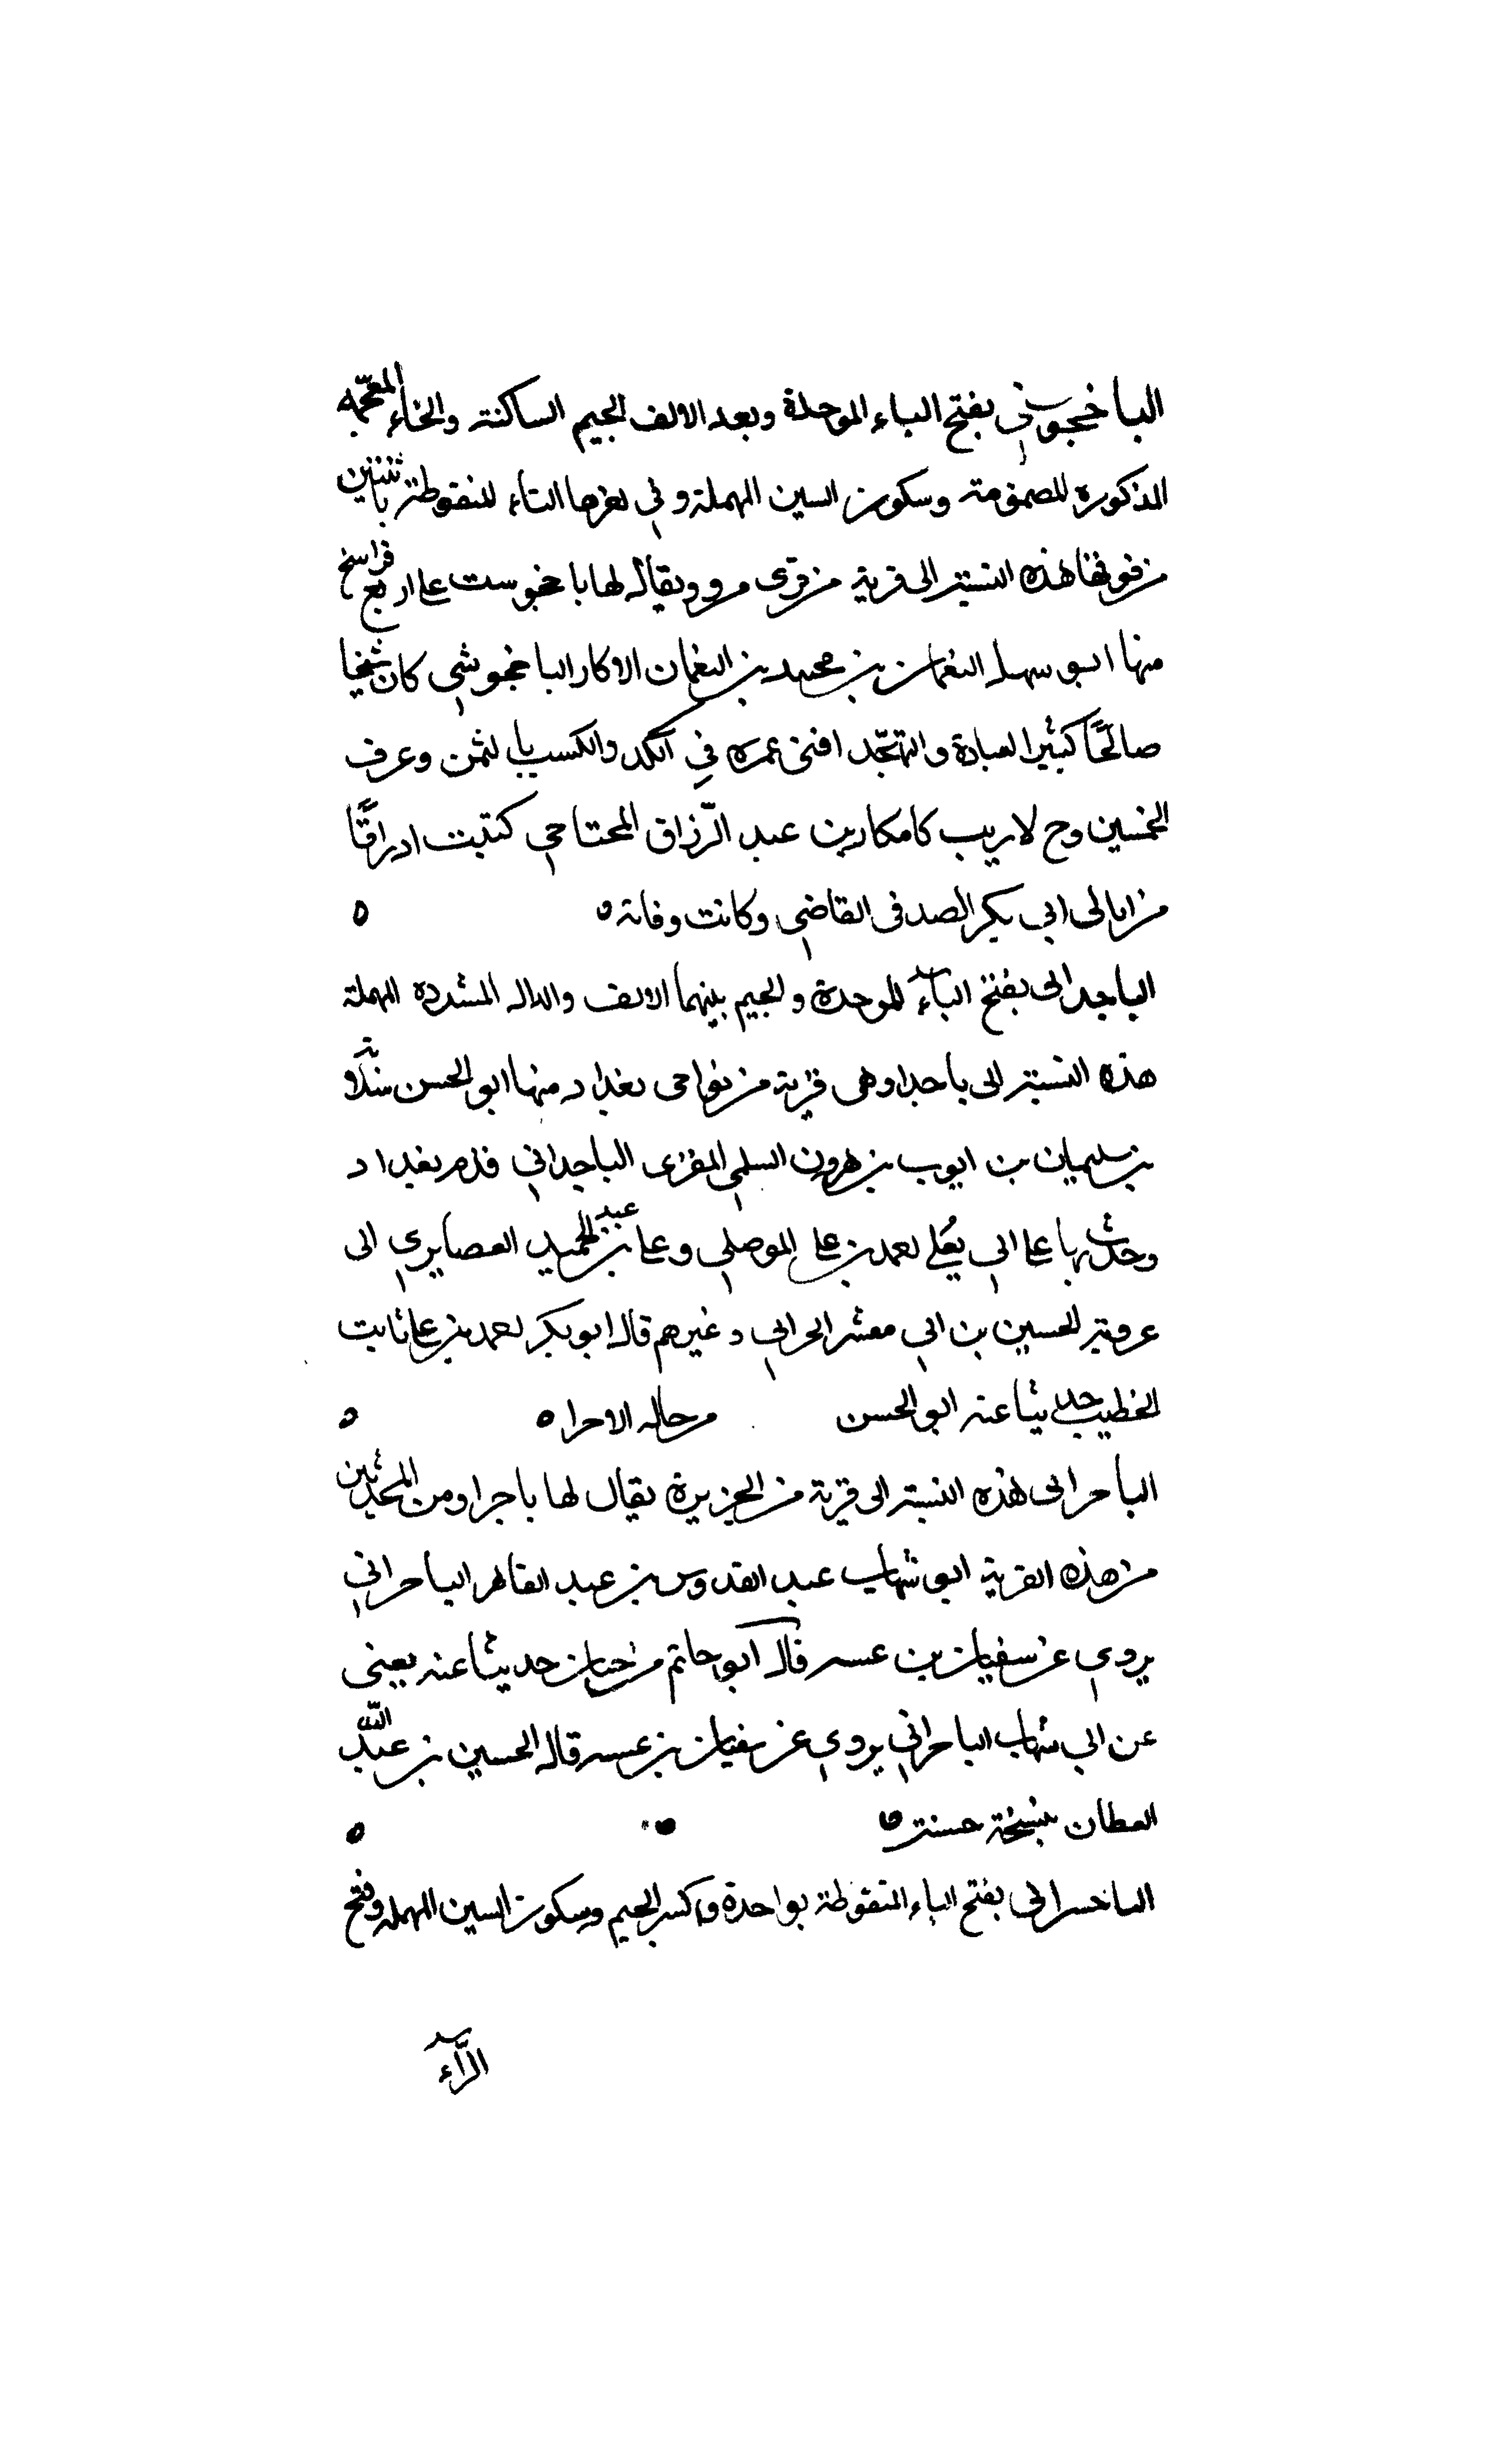 الباخجوستي بفتح الباء الموحدة وبعد الالف الجيم الساكنة والخاء المعجمة
المذكوره المضمومة وسكون السين المهملة وفي اخرها التاء المنقوطة باثنتين
من فوقها هذه النسبة الى قرية من قرى مرو ويقال لها باخجوست على اربع فراسخ
منها ابو سهل النعمان بن محمد بن النعمان الاكار الباخجوستي كان شيخا
صالحًا كثير العبادة والتهجّد افنى عمره في الكد والكسب وعرف
الخمسين وح لاريب كامكار بن عبد الرّزاق المحتاجي كتبت اوراقًا
من امالي ابي بكر الصدفي القاضي وكانت وفاته
الباجدائي بفتح الباء الموحدة والجيم بينهما الالف والدال المشدده المهملة
هذه النسبة الى باجدا وهى قرية من نواحى بغداد منها ابو الحسن سلامة
بن سليمان بن ايوب بن هرون السلمي المقرى الباجدائي قدم بغداد
وحدث بها عن ابي يعلى احمد بن علي الموصلي وعلي بن عبد الحميد الغضايري وابى
عروبة الحسين بن ابي معشر الحراني وغيرهم قال ابو بكر احمد بن علي ثابت
الخطيب حدثنا عنه ابو الحسن
الباجرائي هذه النسبة الى قرية من الجزيرة يقال لها باجرا ومن المحدثين
من هذه القرية ابو شهاب عبد القدوس بن عبد القاهر الباجرائي
يروي عن سفيان بن عيينه قال ابو حاتم بن حبان حدثنا عنه يعنى
عن ابي شهاب الباجرائي يروي عن سفيان بن عيينه قال الحسين بن عبد الله
القطان بنسخة حسنة
الباجسرائي بفتح الباء المنقوطة بواحدة وكسر الجيم وسكون السين المهملة وفتح
الرّاء